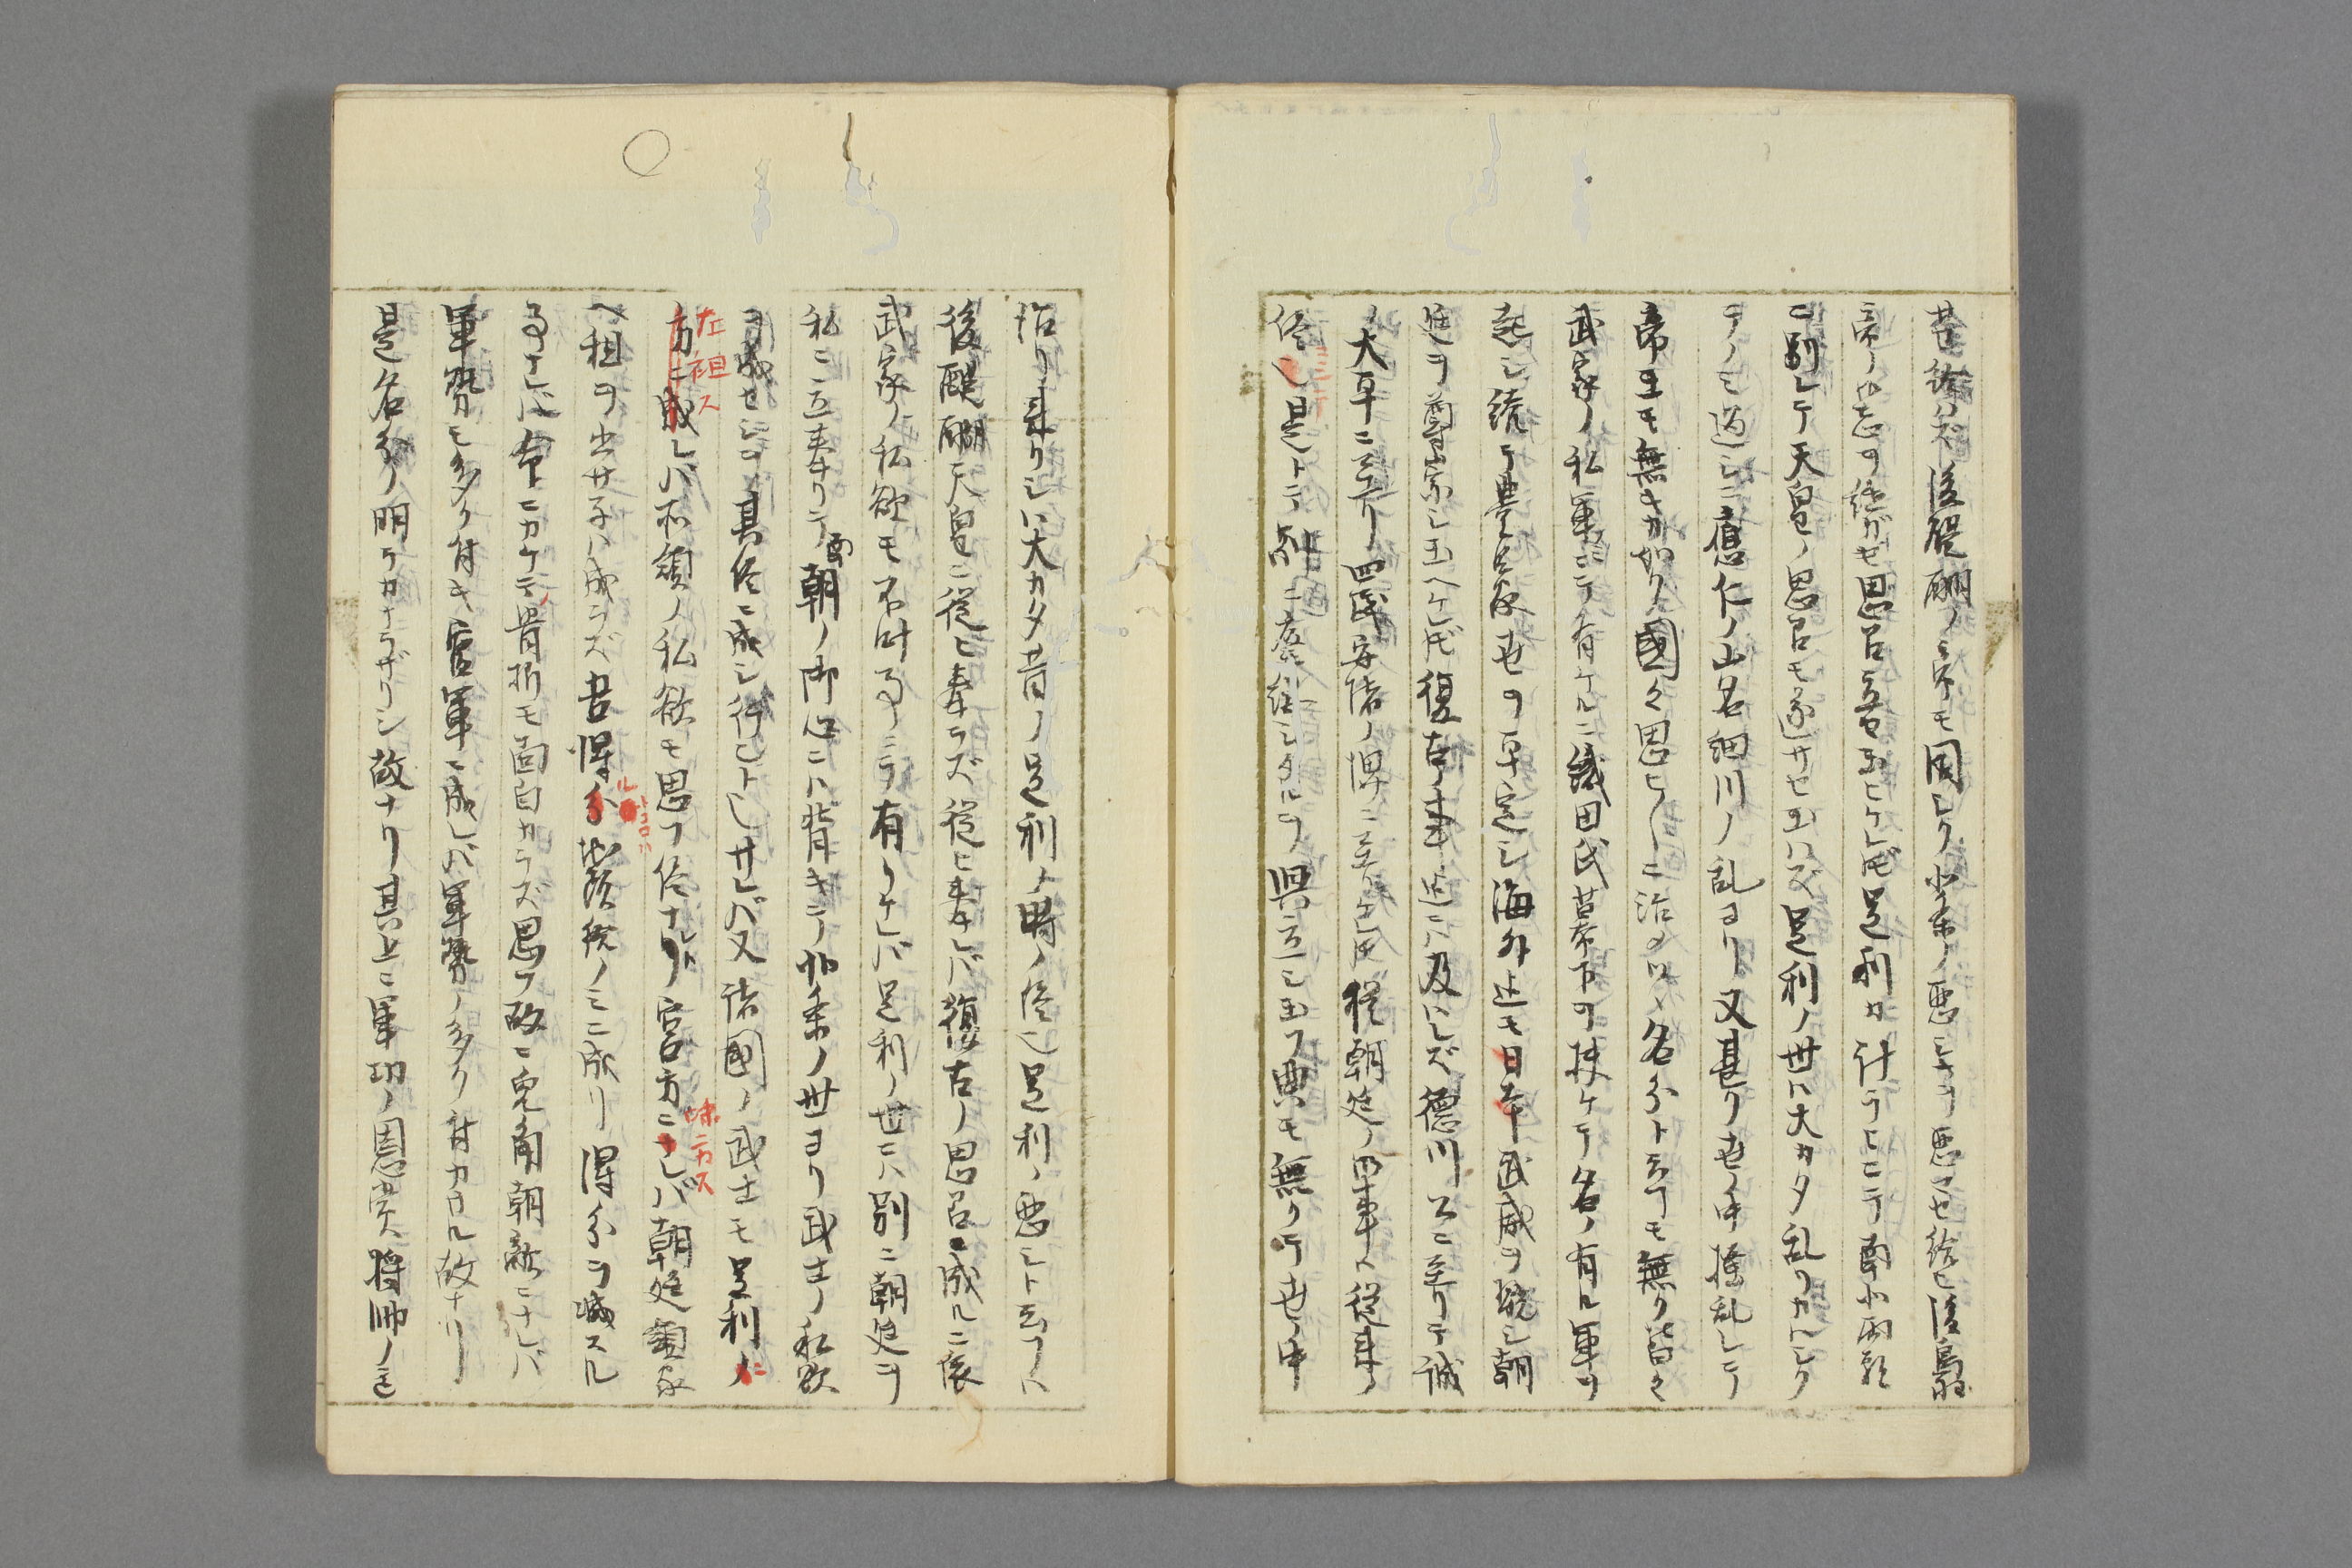 世給ハズ後醍醐ノ帝モ同ジク北條ノ悪シキヲ悪マセ給ヒ後鳥羽
帝ノ御志ヲ継ガセ思召立セ玉ヒケレドモ足利ガ計ラヒニテ南北両朝
ニ別レテ天皇ノ思召モ遂サセ玉ハズ足利ノ世ハ大カタ乱リガハシク
テノミ過シニ應仁ノ山名細川ノ乱ヨリ又甚ク世ノ中擾乱シテ
帝王モ無キガ如ク國々思ヒ〳〵ニ治メ名分ト云フモ無ク皆々
武家ノ私軍ニテ有ケルニ織田氏幕下ヲ挟ケテ名ノ有ル軍ヲ
起シ続テ豊臣家世ヲ平定シ海外迄モ日本武威ヲ輝シ朝
廷ヲ尊崇シ玉ヘケレドモ復古ノ事迄ハ及ハレズ徳川公ニ至リテ誠
ノ大平ニ至リ四民安堵ノ澤ニ至レドモ猶朝廷ノ御事ハ従来ノ
侭ニ是トテ別ニ廃絶シタルヲ興立シ玉フ典モ無クテ世ノ中
治リ来リシハ大カタ昔ノ足利ノ時ノ侭也足利ノ悪シト云フハ
後醍醐天皇ニ従ヒ奉ラズ従ヒ奉レバ復古ノ思召ニ成ルニ依
武家ノ私欲モ不叶事ニテ有リケレバ足利ノ世ニハ別ニ朝廷ヲ
私ニ立奉リテ南朝ノ御心ニハ背キテ北条ノ世ヨリ武士ノ私欲
ヲ成セシヲ其侭ニ成シ行ヒトレ サレバ又諸國ノ武士モ足利ノニ
方ニ成レバ左袒ス所領ノ私欲モ思フ侭ナレド宮方ニナレバ味方ス朝廷領家
ヘ租ヲ出サネハ成ラズ吾得ル分トコロハ減ノミニ成リ得分ヲ減スル
事ナレバ命ニカケテノ骨折モ面白カラズ思フ故ニ兎角朝敵ニナレバ
軍勢モ多ク付キ官軍ニ成レバ軍勢ノ多ク付カザル故ナリ
是名分ノ明ラカナラザリシ故ナリ其上ニ軍功ノ恩賞將帥ノミ